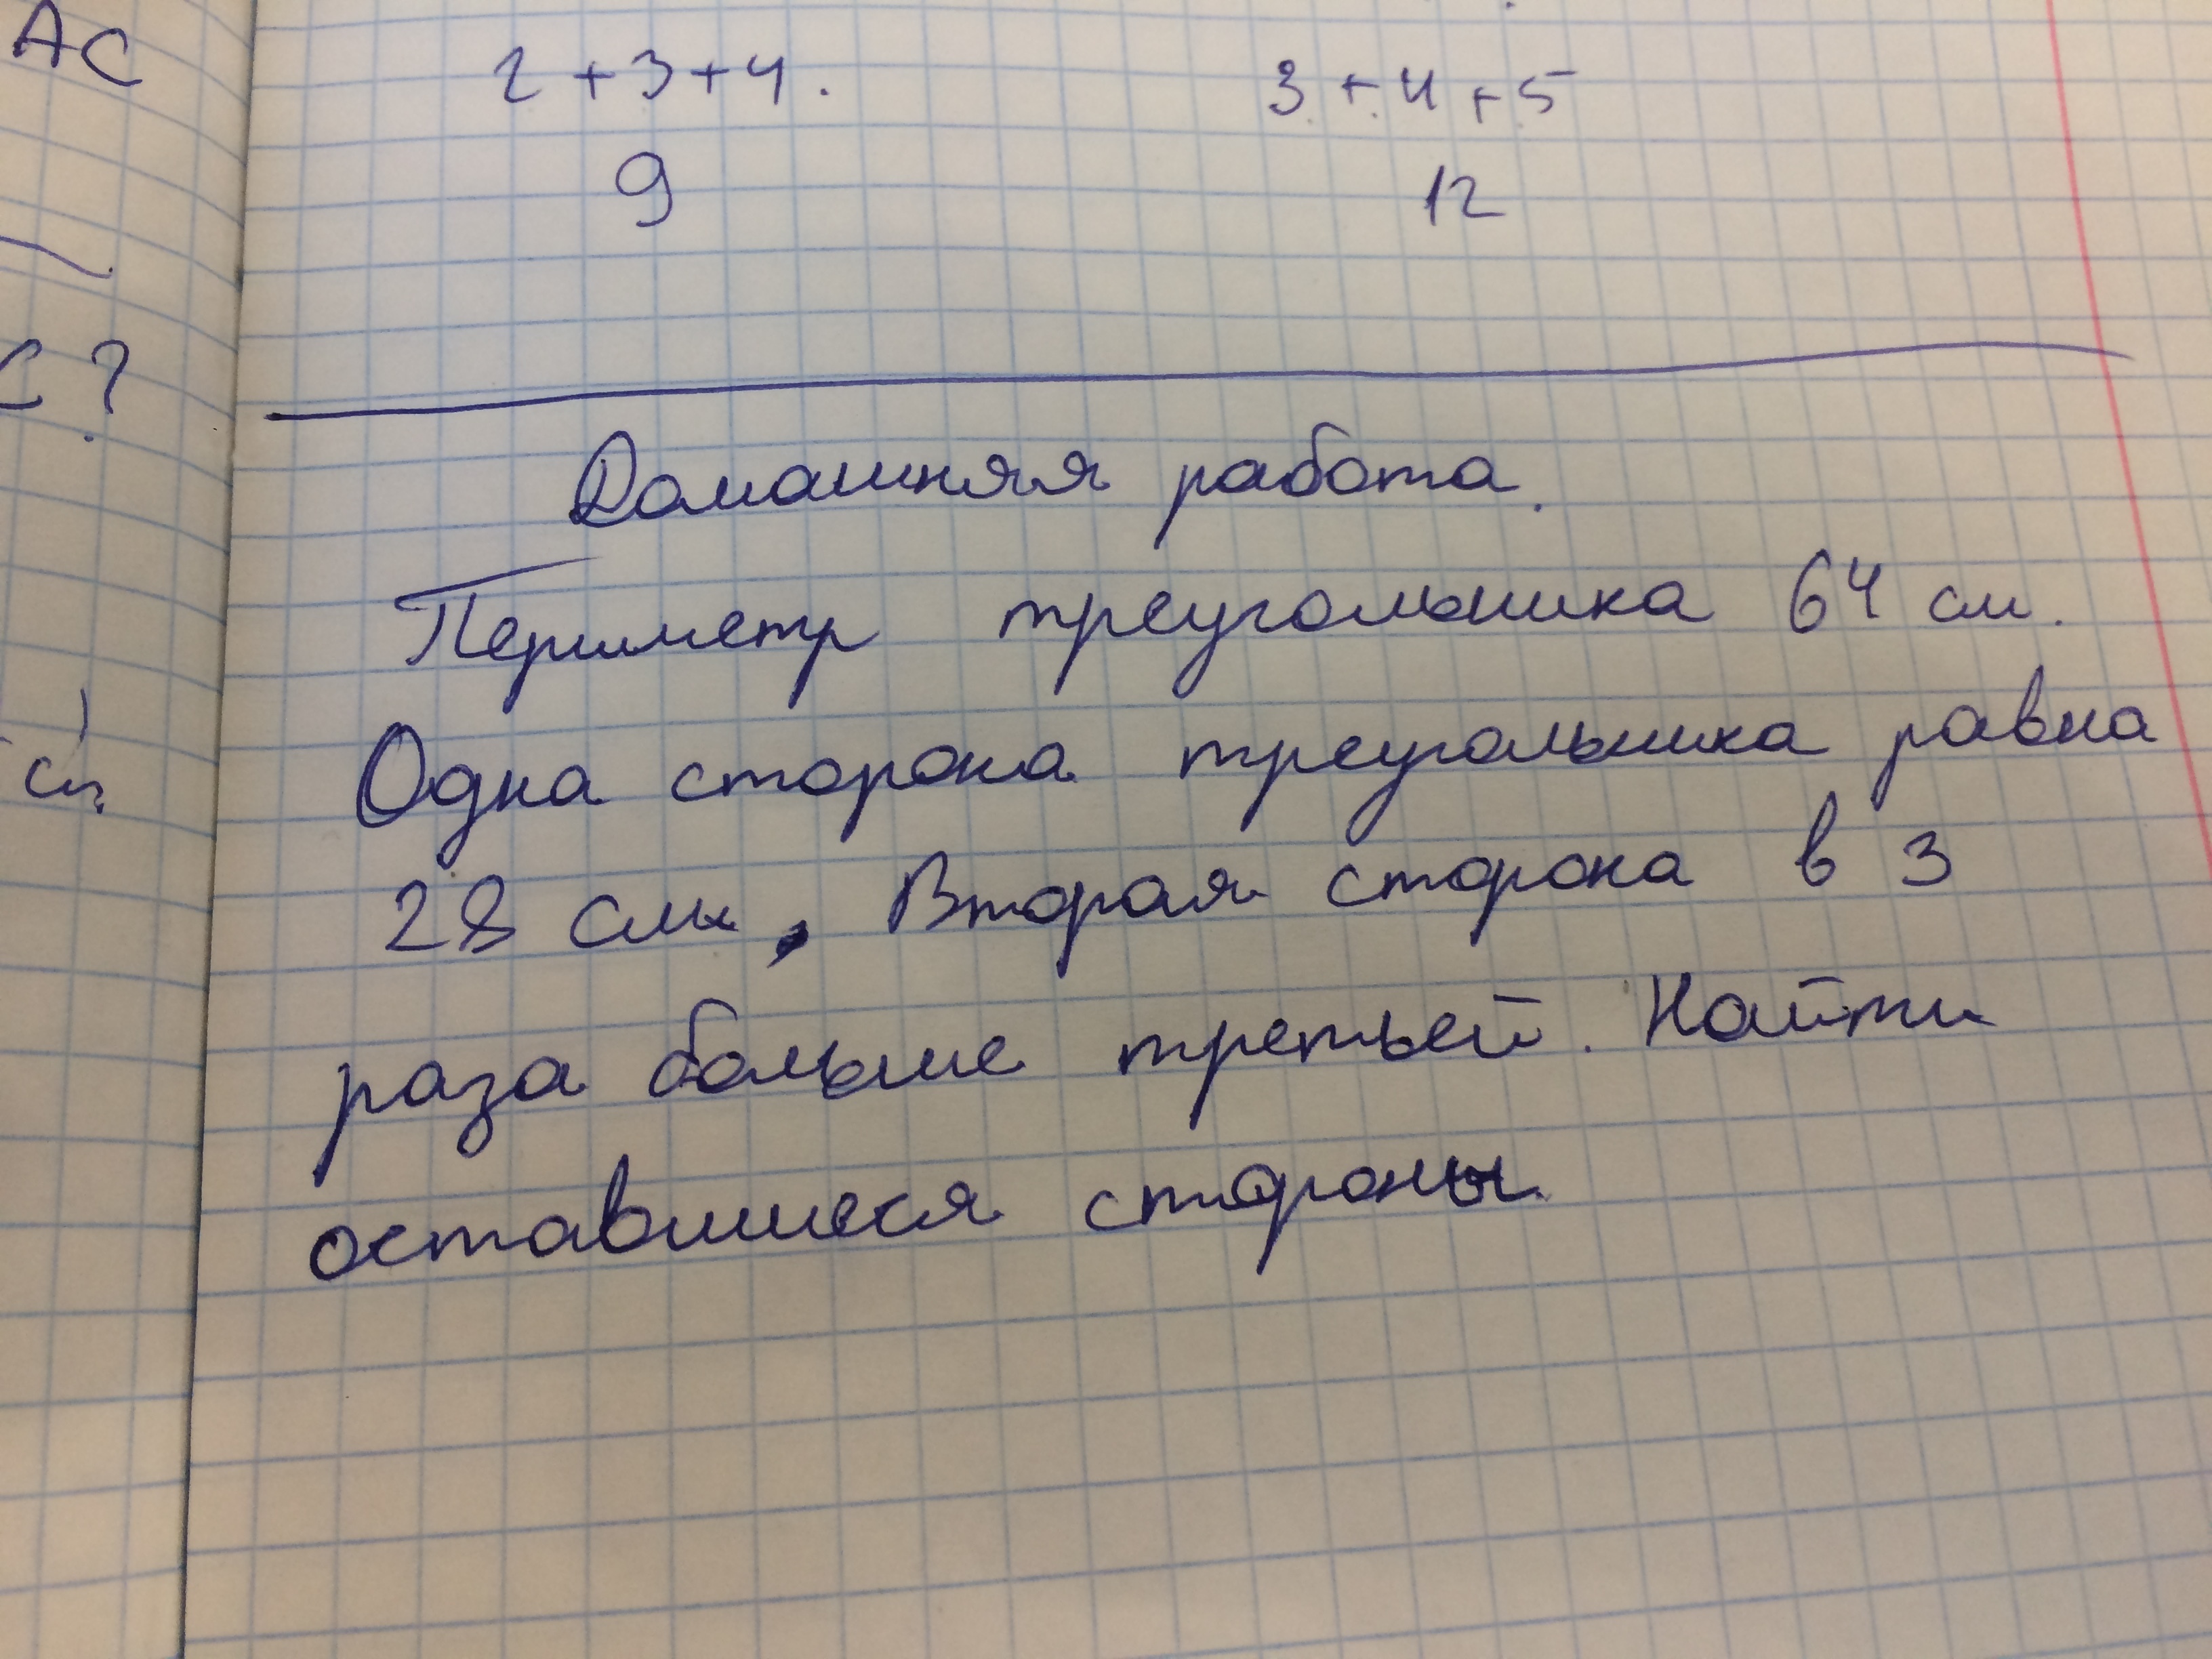 АС
2+3+4.
3+4+5
9
12
с?
Домашняя работа.
Периметр треугольника 64 см.
Одна сторона треугольника равна
28 см, Вторая сторона в 3
раза больше третьей. Найти
оставшиеся стороны.